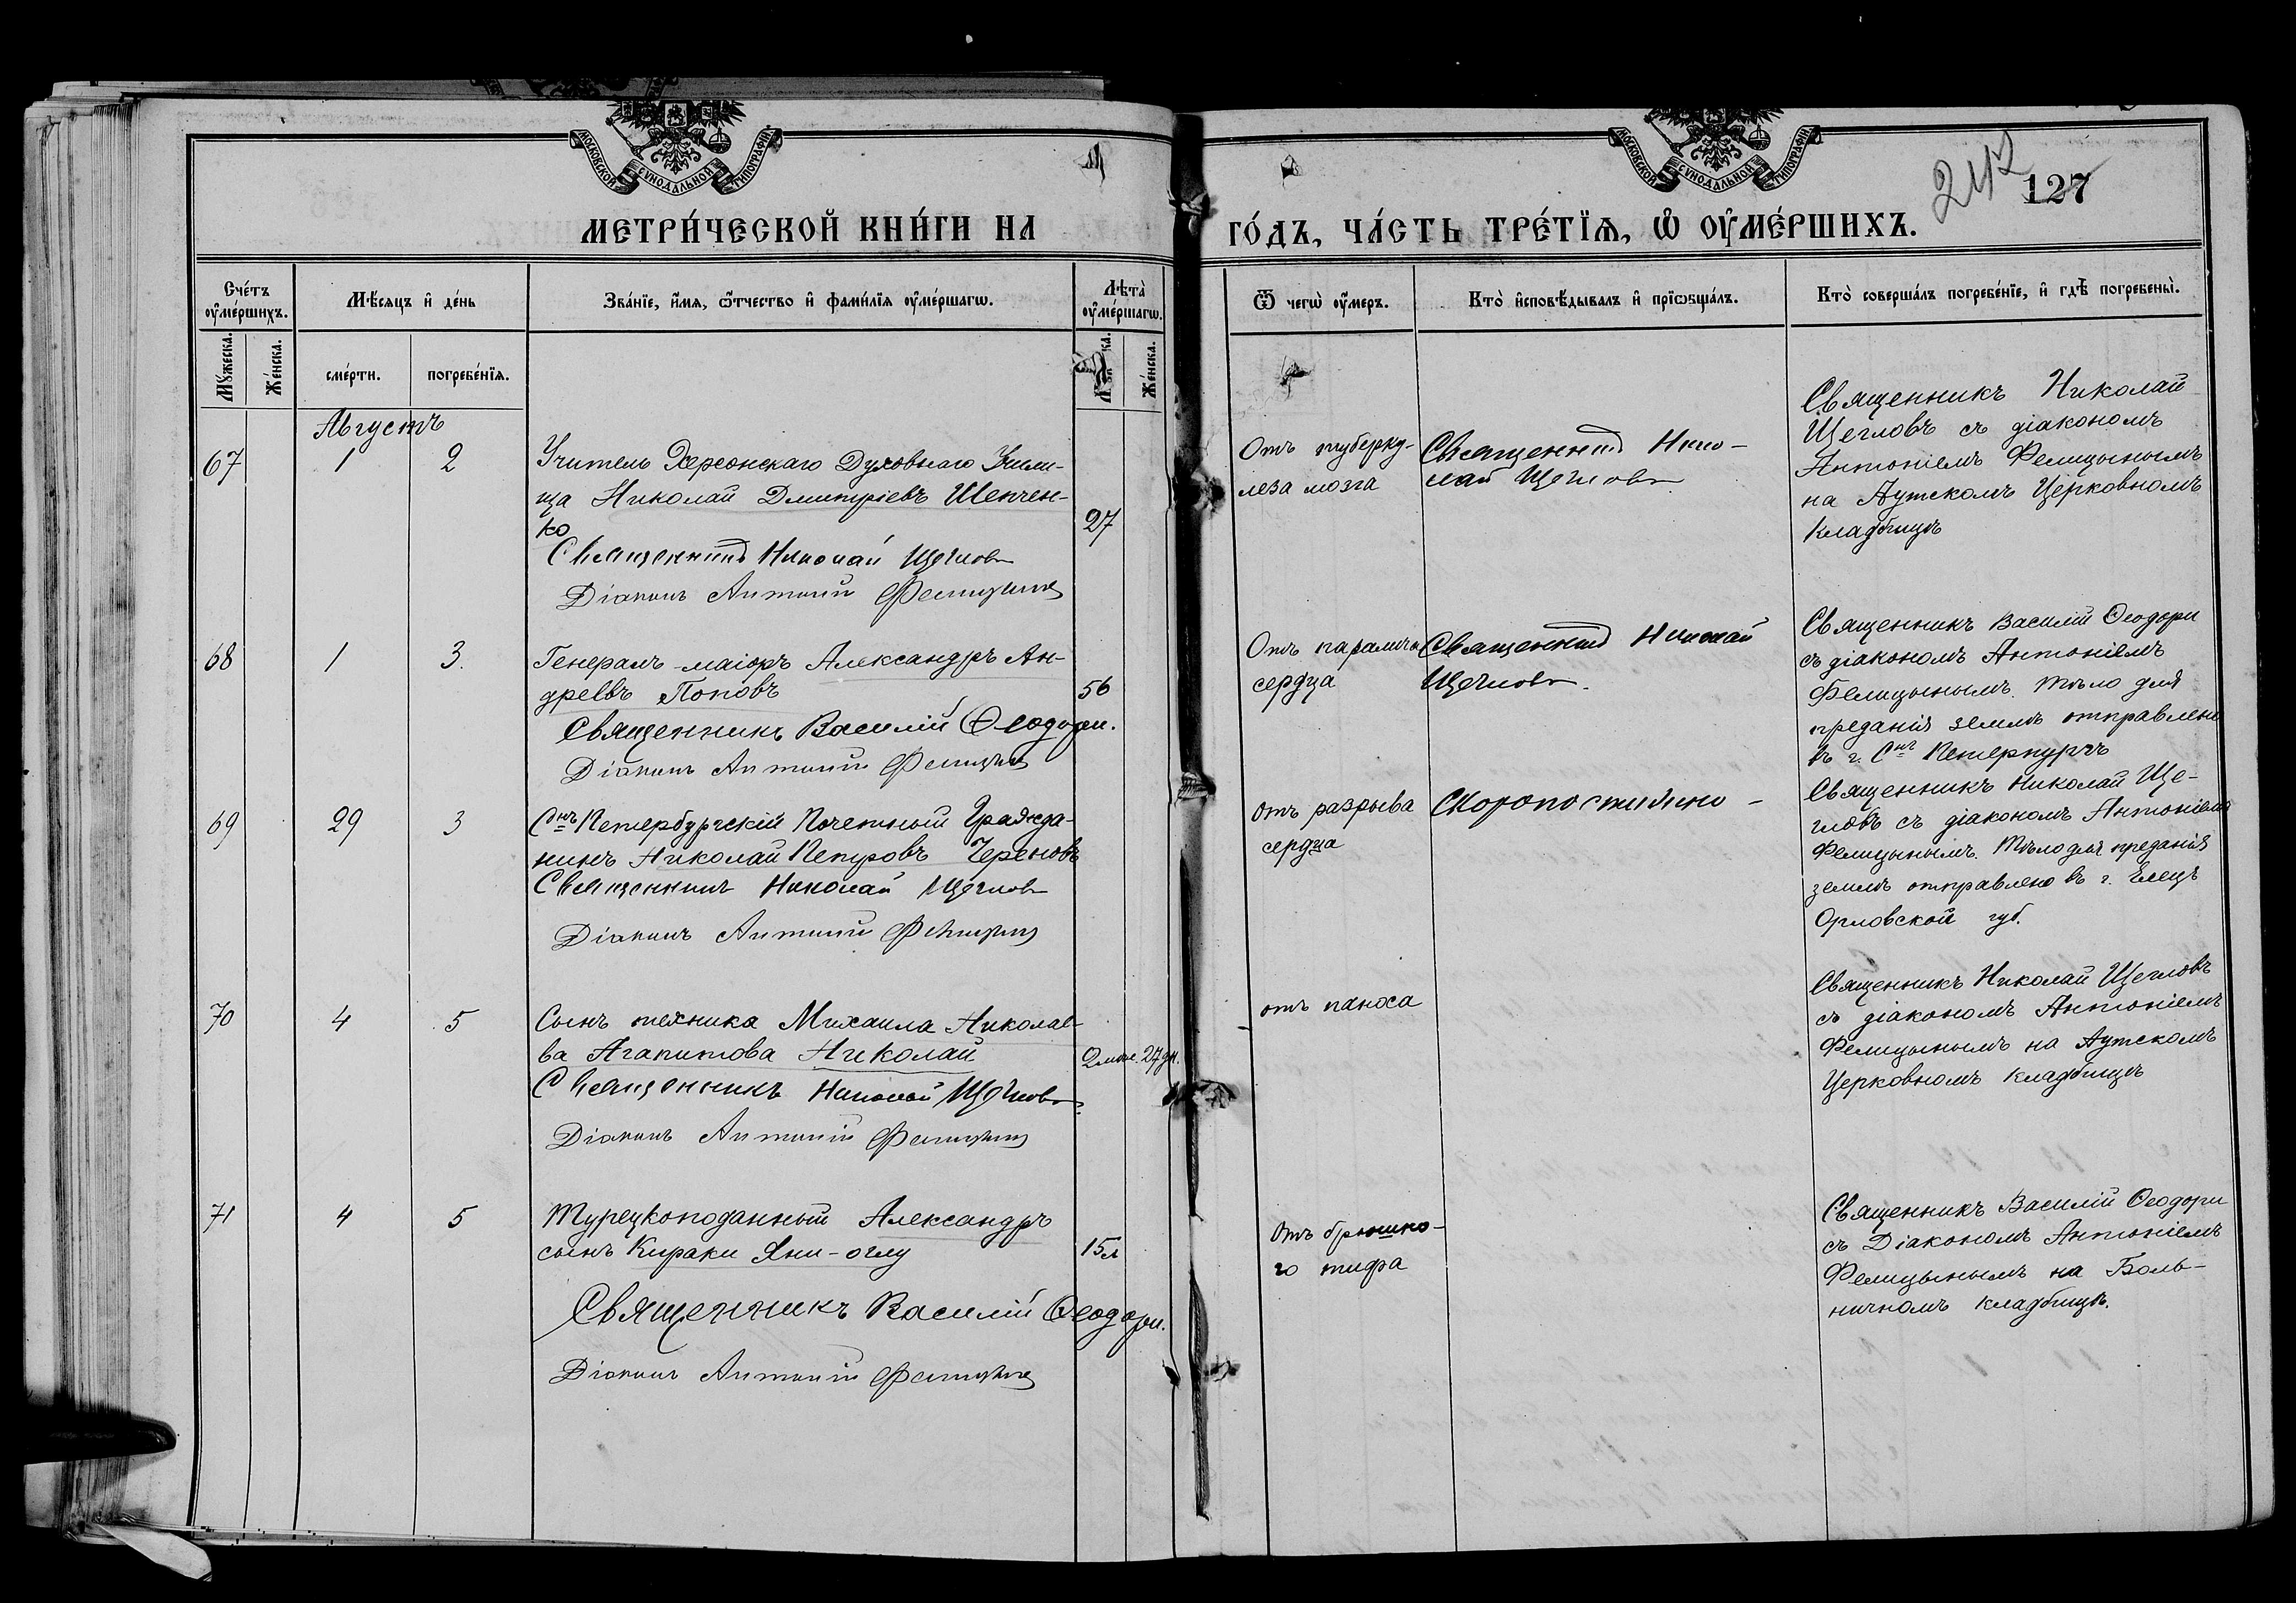 МОСКОВСКОЙ СѴНОДАЛЬНОЙ ТИПОГРАФІИ
МОСКОВСКОЙ СѴНОДАЛЬНОЙ ТИПОГРАФІИ
242
127
МЕТРИ́ЧЕСКОЙ КНИ́ГИ НА
ГО́ДЪ, ЧА́СТЬ ТРЕ́ТЇѦ, Ѡ҆ ОУ҆МЕ́РШИХЪ.
Сче́тъ оу҆ме́ршихъ.
Мѣ́сяцъ и҆ де́нь
Зва́нїе, и҆́мя, ѻ҆́тчество и҆ фами́лїя оу҆ме́ршагѡ.
Лѣ́та оу҆ме́ршагѡ.
Ѿ чегѡ̀ оу҆́меръ.
Кто̀ и҆сповѣ́дывалъ и҆ прїѡбща́лъ.
Кто̀ соверша́лъ погребе́нїе, и҆ гдѣ̀ погребены̀.
Мꙋ́жеска.
Же́нска.
сме́рти.
погребе́нїя.
Же́нска.
Августъ
67
1
2
Учитель Херсонскаго Духовнаго Учили-
ща Николай Дмитріевъ Шевчен-
ко
27
Священникъ Николай Щегловъ
Діаконъ Антоній Фелицынъ
Отъ туберку-
леза мозга
Священникъ Нико-
лай Щегловъ
Священникъ Николай
Щегловъ съ діакономъ
Антоніемъ Фелицынымъ
на Аутскомъ Церковномъ
кладбищѣ
68
1
3.
Генералъ-маіоръ Александръ Ан-
дреевъ Поповъ
56
Священникъ Василій Ѳеодори.
Діаконъ Антоній Фелицынъ
Отъ паралича
сердца
Священникъ Николай
Щегловъ.
Священникъ Василій Ѳеодори
съ діакономъ Антоніемъ
Фелицынымъ. Тѣло для
преданія землѣ отправлено
въ г. Снъ Петербургъ
69
29
3
Снъ Петербургскій Почетный Гражда-
нинъ Николай Петровъ Черновъ
Священникъ Николай Щегловъ
Діаконъ Антоній Фелицынъ
Отъ разрыва
сердца
Скоропостижно -
Священникъ Николай Ще-
гловъ съ діакономъ Антоніемъ
Фелицынымъ. Тѣло для преданія
землѣ отправлено въ г. Елецъ
Орловской губ.
70
4
5
Сынъ техника Михаила Николае-
ва Агапитова Николай
2 мѣс. 27 дн.
Священникъ Николай Щегловъ
Діаконъ Антоній Фелицынъ
отъ поноса
Священникъ Николай Щегловъ
съ діакономъ Антоніемъ
Фелицынымъ на Аутскомъ
Церковномъ кладбищѣ
71
4
5
Турецкоподанный Александръ
сынъ Кираки Яни-оглу
15 л
Священникъ Василій Ѳеодори.
Діаконъ Антоній Фелицынъ
Отъ брюшно-
го тифа
Священникъ Василій Ѳеодори
съ Діакономъ Антоніемъ
Фелицынымъ на Боль-
ничномъ кладбищѣ.